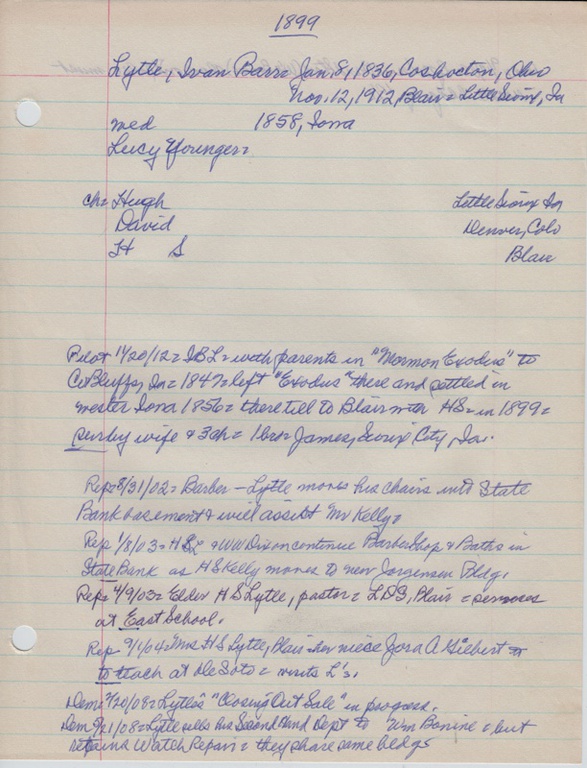 1899
Lytle, Ivan Barr = Jan. 8, 1836, Coshocton, Ohio
Nov. 12, 1912, Blair = Little Sioux, Ia
med 1858, Iowa
Lucy Younger =
ch = Hugh Little Sioux Ia
David Denver, Colo
H S Blair
Pilot 11/20/12 = IBL = with parents in "Mormon Exodus" to
Co Bluffs, Ia = 1847 = left "Exodus" there and settled in
wester Iowa 1856 = there till to Blair with HS = in 1899 =
surby wife & 3 ch = 1 bro = James, Sioux City, Ia.
Rep = 8/31/02 = Barber - Lytle moves his chairs into State
Bank basement & will assist Mr Kelly =
Rep 1/8/03 = HSL & WW Dixon continue Barber Shop & Baths in
State Bank as HS Kelly moves to new Jorgensen Bldg.
Rep = 4/9/03 = Elder HS Lytle, pastor = LDS, Blair = services
at East School.
Rep 9/1/04 = Mrs HS Lytle, Blair = her niece Zora A Giebert =
to teach at DeSoto = visits L's.
Dem = 9/20/08 = Lytle's "Closing Out Sale" in progress.
Dem 9/21/08 = Lytle sells his Second Hand Dept to Wm Bonine = but
retains Watch Repair = they share same bldg =